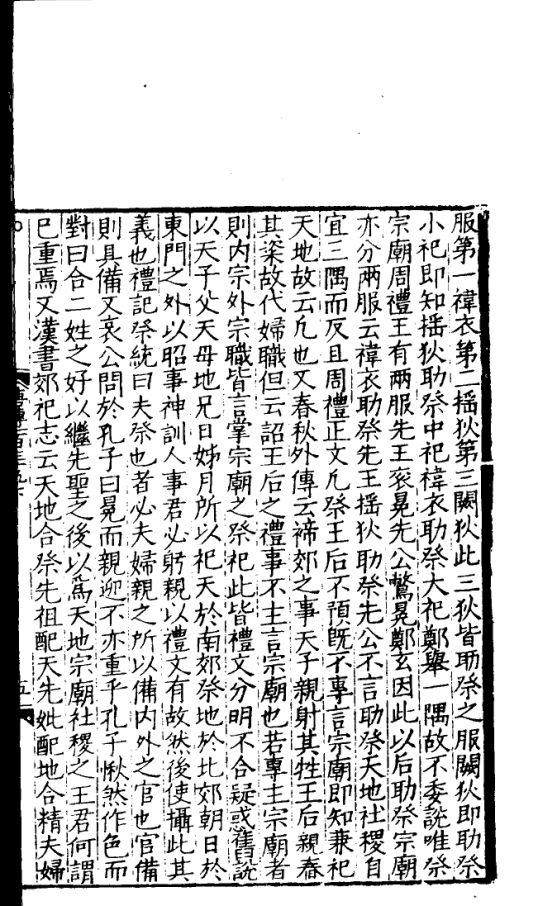 服第一褘衣第二揺狄第三闕狄此三狄皆助祭之服闕狄即助祭
小祀即知揺狄助祭中祀褘衣助祭大祀鄭舉一隅故不委說唯祭
宗廟周禮王有兩服先王衮冕先公鷩冕鄭玄因此以后助祭宗廟
亦分兩服云褘衣助祭先王揺狄助祭先公不言助祭天地社稷自
宜三隅而反且周禮正文凡祭王后不預旣不專言宗廟即知兼祀
天地故云凡也又春秋外傳云禘郊之事天子親射其牲王后親舂
其粢故代婦職但云詔王后之禮事不主言宗廟也若專主宗廟者
則内宗外宗職皆言掌宗廟之祭祀此皆禮文分明不合疑或舊說
以天子父天母地兄日姊月所以祀天於南郊祭地於北郊朝日於
東門之外以昭事神訓人事君必躬親以禮文有故然後使攝此其
義也禮記祭統曰夫祭也者必夫婦親之所以備内外之官也官備
則具備又哀公問於孔子曰冕而親迎不亦重乎孔子愀然作色而
對曰合二姓之好以繼先聖之後以爲天地宗廟社稷之主君何謂
已重焉又漢書郊祀志云天地合祭先祖配天先妣配地合精夫婦
五